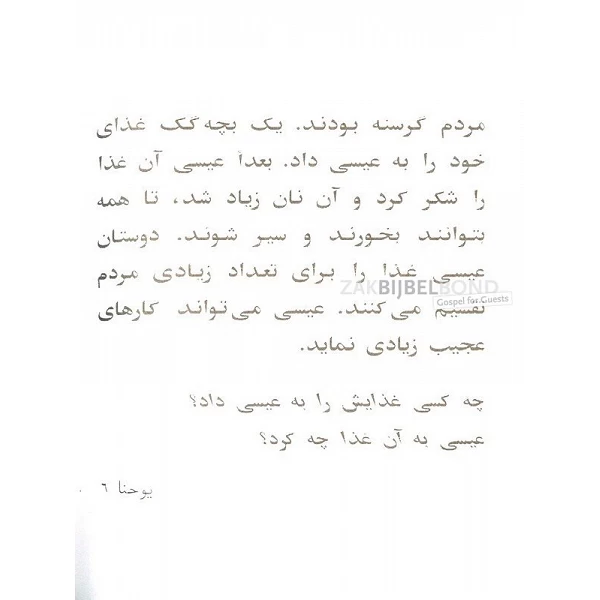 مردم گرسنه بودند. یک بچه‌گک غذای
خود را به عیسی داد. بعداً عیسی آن غذا
را شکر کرد و آن نان زیاد شد، تا همه
بتوانند بخورند و سیر شوند. دوستان
عیسی غذا را برای تعداد زیادی مردم
تقسیم می‌کنند. عیسی می‌تواند کارهای
عجیب زیادی نماید.
ZAKBIJBELBOND
Gospel for Guests
چه کسی غذایش را به عیسی داد؟
عیسی به آن غذا چه کرد؟
یوحنا ۶